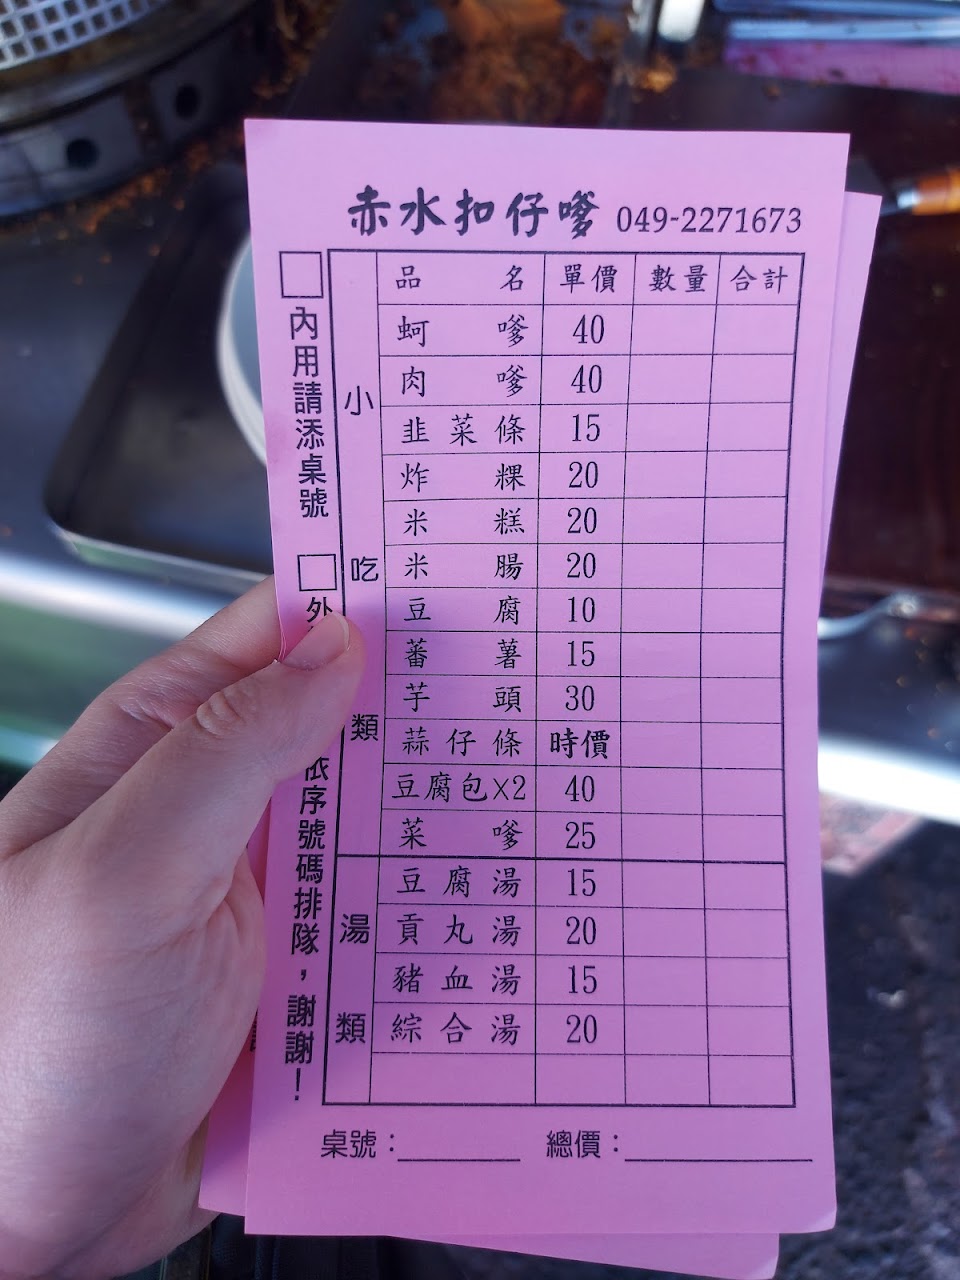 赤水扣仔嗲 049-2271673
品名 單價 數量 合計
小吃類
蚵嗲 40
肉嗲 40
韭菜條 15
炸粿 20
米糕 20
米腸 20
豆腐 10
蕃薯 15
芋頭 30
蒜仔條 時價
豆腐包X2 40
菜嗲 25
湯類
豆腐湯 15
貢丸湯 20
豬血湯 15
綜合湯 20
桌號： 總價：
內用請添桌號
外
依序號碼排隊，謝謝！